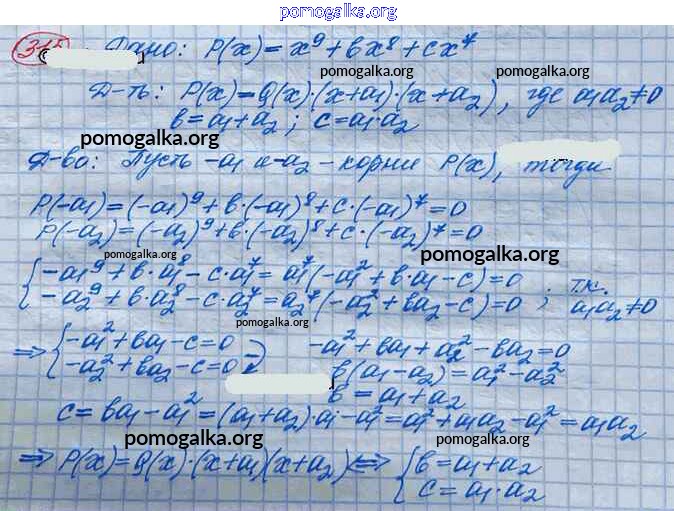 pomogalka.org
315 Дано: P(x) = x⁹ + bx⁸ + cx⁷
pomogalka.org pomogalka.org
Д-ть: P(x) = Q(x)·(x+a₁)·(x+a₂), где a₁a₂≠0
b = a₁+a₂; c = a₁·a₂
pomogalka.org
Д-во: Пусть -a₁ и -a₂ - корни P(x), тогда
P(-a₁) = (-a₁)⁹ + b·(-a₁)⁸ + c·(-a₁)⁷ = 0
P(-a₂) = (-a₂)⁹ + b·(-a₂)⁸ + c·(-a₂)⁷ = 0
pomogalka.org pomogalka.org
{ -a₁⁹ + b·a₁⁸ - c·a₁⁷ = a₁⁷(-a₁² + b·a₁ - c) = 0 ; т.к.
-a₂⁹ + b·a₂⁸ - c·a₂⁷ = a₂⁷(-a₂² + ba₂ - c) = 0 a₁a₂≠0
pomogalka.org
⇒ { -a₁² + ba₁ - c = 0 -a₁² + ba₁ + a₂² - ba₂ = 0
-a₂² + ba₂ - c = 0 b(a₁-a₂) = a₁² - a₂²
b = a₁+a₂
c = ba₁ - a₁² = (a₁+a₂)·a₁ - a₁² = a₁² + a₁a₂ - a₁² = a₁a₂
pomogalka.org pomogalka.org
⇒ P(x) = Q(x)·(x+a₁)(x+a₂) ⇔ { b = a₁+a₂
c = a₁·a₂
pomogalka.org